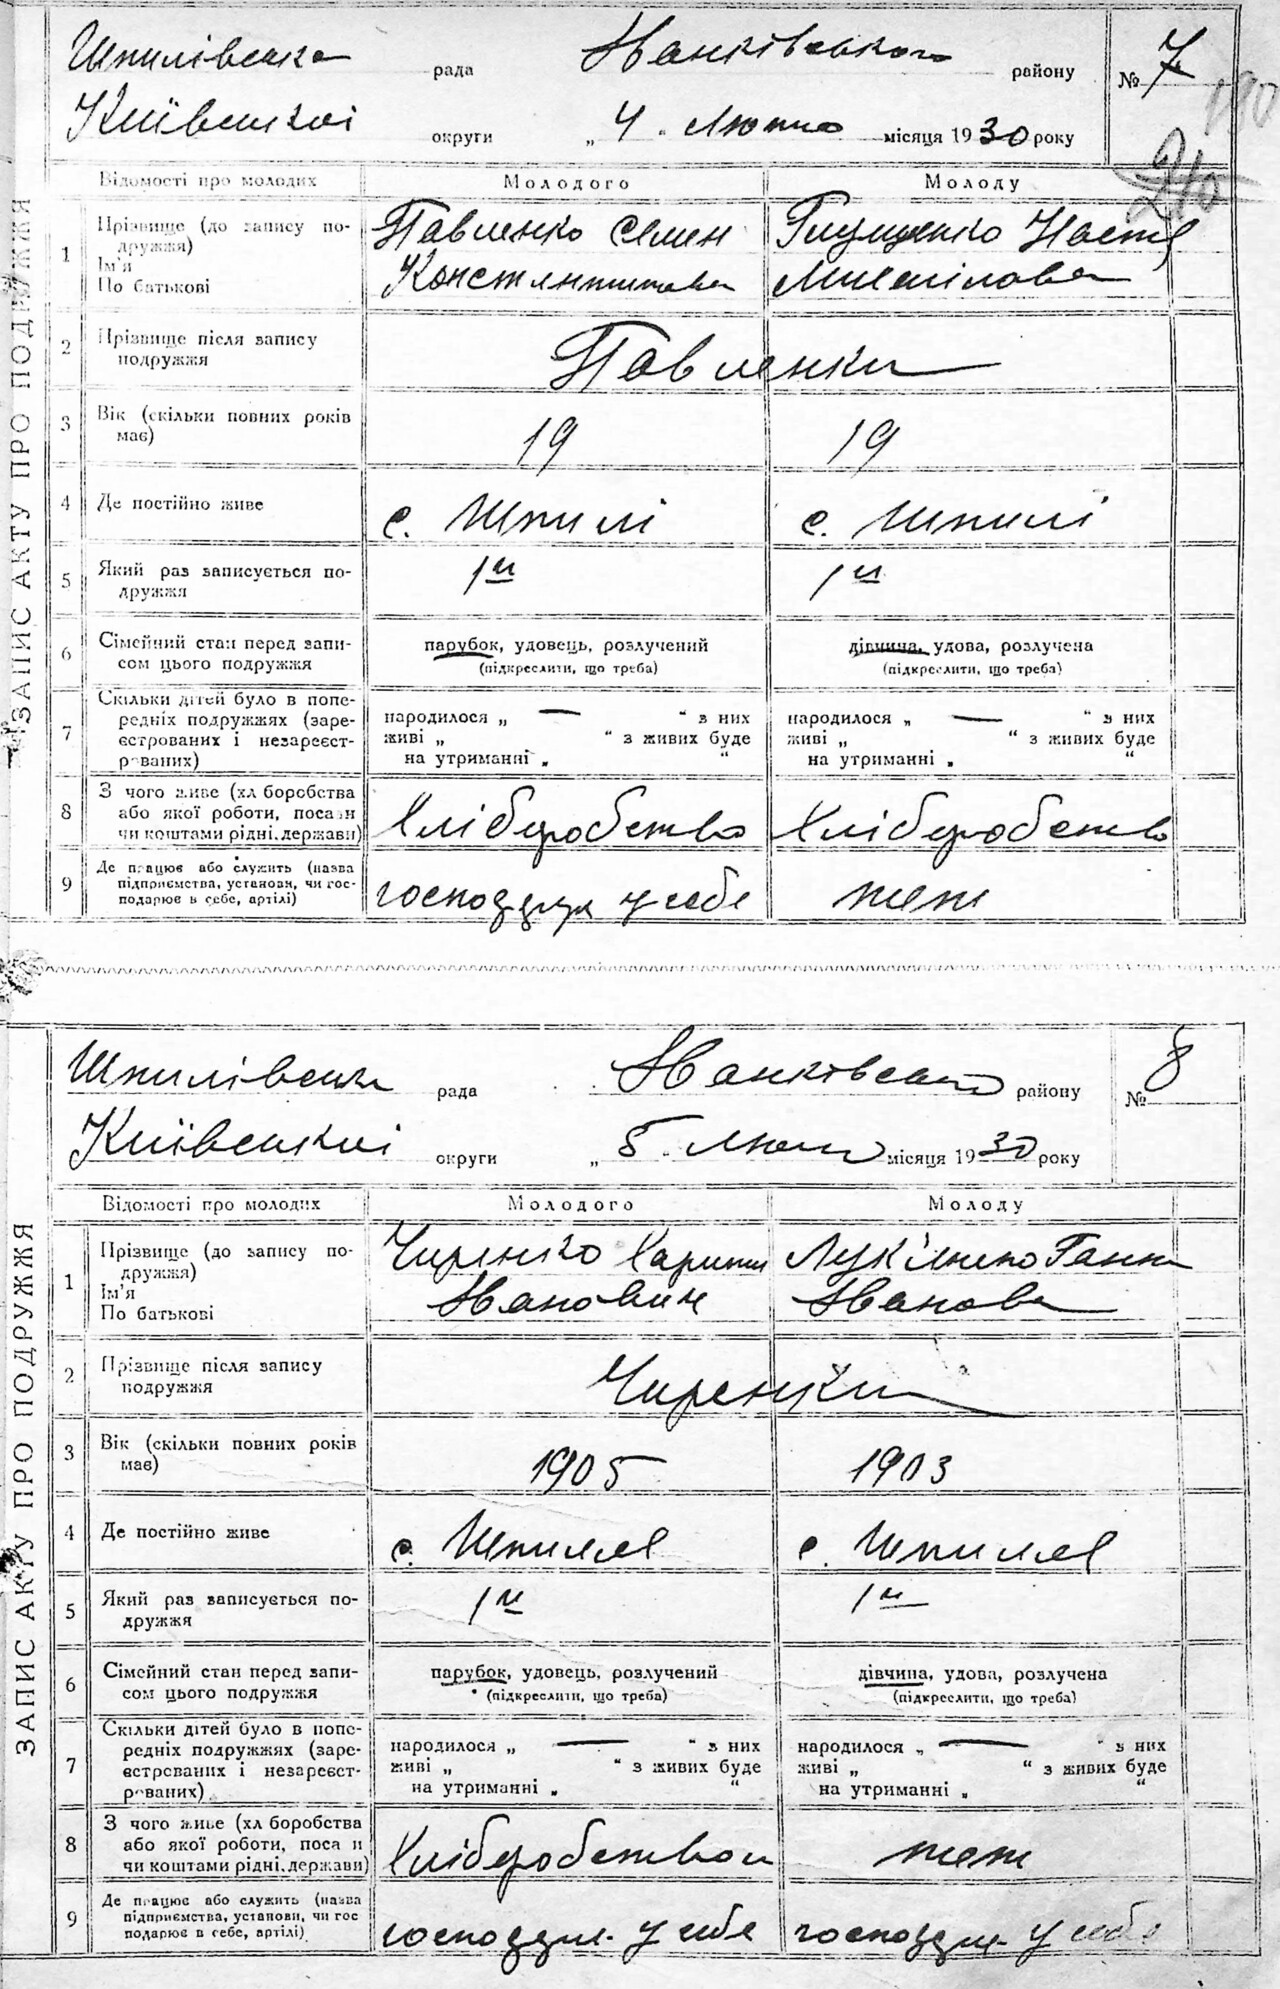 Шпилівська рада Іванківського району № 7
190
Київської округи „ 4 “ Лютого місяця 1930 року
210
ЗАПИС АКТУ ПРО ПОДРУЖЖЯ
Відомості про молодих Молодого Молоду
1 Прізвище (до запису по- Павленко Семен Глущенко Настя
дружжя)
Ім'я
По батькові Михайлова
2 Прізвище після запису Павленки
подружжя
3 Вік (скільки повних років 19 19
має)
4 Де постійно живе с. Шпилі с. Шпилі
5 Який раз записується по- 1й 1й
дружжя
6 Сімейний стан перед запи- парубок, удовець, розлучений дівчина, удова, розлучена
сом цього подружжя (підкреслити, що треба) (підкреслити, що треба)
7 Скільки дітей було в попе-
редніх подружжях (заре- народилося „ — “ з них народилося „ — “ з них
єстрованих і незареєст- живі „ “ з живих буде живі „ “ з живих буде
рованих) на утриманні „ “ на утриманні „ “
8 З чого живе (хл боробства
або якої роботи, посади Хліборобство Хліборобство
чи коштами рідні, держави)
9 Де працює або служить (назва
підприємства, установи, чи гос- у себе теж
подарює в себе, артілі)
Шпилівська рада Іванківського району № 8
Київської округи „ 5 “ місяця 1930 року
ЗАПИС АКТУ ПРО ПОДРУЖЖЯ
Відомості про молодих Молодого Молоду
1 Прізвище (до запису по- Чиренко Харитон Лук'яненко Ганна
дружжя)
Ім'я
По батькові Іванович Іванова
2 Прізвище після запису Чиренки
подружжя
3 Вік (скільки повних років 1905 1903
має)
4 Де постійно живе с. Шпилях с. Шпилях
5 Який раз записується по- 1й 1й
дружжя
6 Сімейний стан перед запи- парубок, удовець, розлучений дівчина, удова, розлучена
сом цього подружжя (підкреслити, що треба) (підкреслити, що треба)
7 Скільки дітей було в попе-
редніх подружжях (заре- народилося „ — “ з них народилося „ — “ з них
єстрованих і незареєст- живі „ “ з живих буде живі „ “ з живих буде
рованих) на утриманні „ “ на утриманні „ “
8 З чого живе (хл боробства
або якої роботи, поса и Хліборобством теж
чи коштами рідні, держави)
9 Де працює або служить (назва
підприємства, установи, чи гос у себе у себе
подарює в себе, артілі)